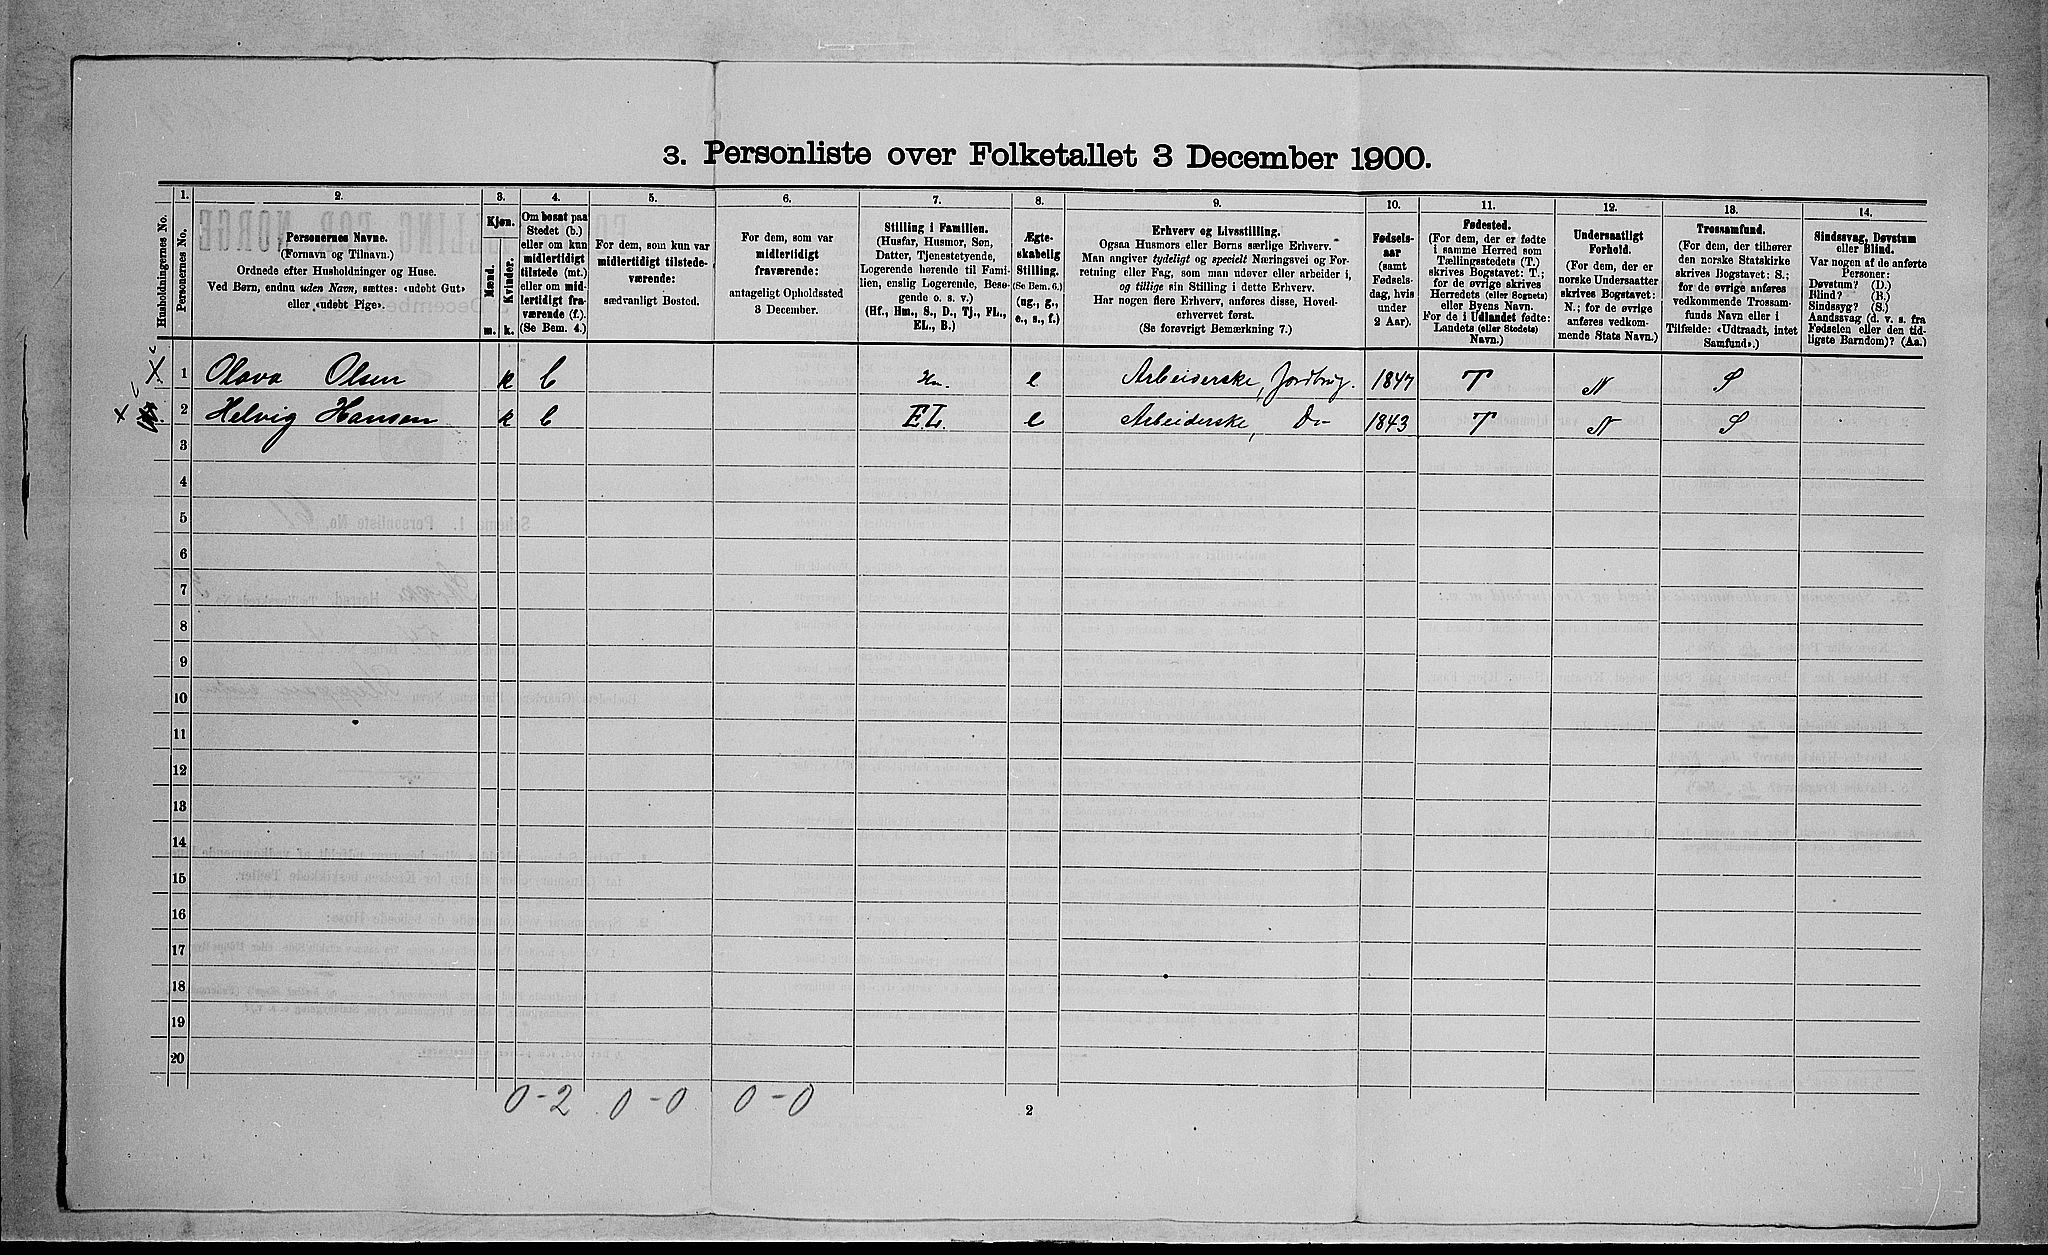 3. Personliste over Folketallet 3 December 1900.
Husholdningernes No.
1.
Personernes No.
2.
Personernes Navne.
(Fornavn og Tilnavn.)
Ordnede efter Husholdninger og Huse.
Ved Børn, endnu uden Navn, sættes: «udøbt Gut»
eller «udøbt Pige».
3.
Kjøn.
Mænd.
Kvinder.
m.
k.
4.
Om bosat paa
Stedet (b.)
eller om kun
midlertidigt
tilstede (mt.)
eller om mid-
lertidigt fra-
værende (f.).
(Se Bem. 4.)
5.
For dem, som kun var
midlertidigt tilstede-
værende:
sædvanligt Bosted.
6.
For dem, som var
midlertidigt
fraværende:
antageligt Opholdssted
3 December.
7.
Stilling i Familien.
(Husfar, Husmor, Søn,
Datter, Tjenestetyende,
Logerende hørende til Fami-
lien, enslig Logerende, Besø-
gende o. s. v.)
(Hf., Hm., S., D., Tj., FL.,
EL., B.)
8.
Ægte-
skabelig
Stilling.
(Se Bem. 6.)
(ug., g.,
e., s., f.)
9.
Erhverv og Livsstilling.
Ogsaa Husmors eller Børns særlige Erhverv.
Man angiver tydeligt og specielt Næringsvei og For-
retning eller Fag, som man udøver eller arbeider i,
og tillige sin Stilling i dette Erhverv.
Har nogen flere Erhverv, anføres disse, Hoved-
erhvervet først.
(Se forøvrigt Bemærkning 7.)
10.
Fødsels-
aar
(samt
Fødsels-
dag, hvis
under
2 Aar).
11.
Fødested.
(For dem, der er fødte
i samme Herred som
Tællingsstedets (T.)
skrives Bogstavet: T.;
for de øvrige skrives
Herredets (eller Sognets)
eller Byens Navn.
For de i Udlandet fødte:
Landets (eller Stedets)
Navn.)
12.
Undersaatligt
Forhold.
(For dem, der er
norske Undersaatter
skrives Bogstavet:
N.; for de øvrige
anføres vedkom-
mende Stats Navn.)
13.
Trossamfund.
(For dem, der tilhører
den norske Statskirke
skrives Bogstavet: S.;
for de øvrige anføres
vedkommende Trossam-
funds Navn eller i
Tilfælde: «Udtraadt, intet
Samfund».)
14.
Sindssvag, Døvstum
eller Blind.
Var nogen af de anførte
Personer:
Døvstum? (D.)
Blind? (B.)
Sindssyg? (S.)
Aandssvag (d. v. s. fra
Fødselen eller den tid-
ligste Barndom)? (Aa.)
1 Olava Olsen k b Hm. e Arbeiderske, Jordbrug. 1847 T N S
2 Helvig Hansen k b E.L. e Arbeiderske, Do 1843 T N S
3
4
5
6
7
8
9
10
11
12
13
14
15
16
17
18
19
20
0-2 0-0 0-0
2